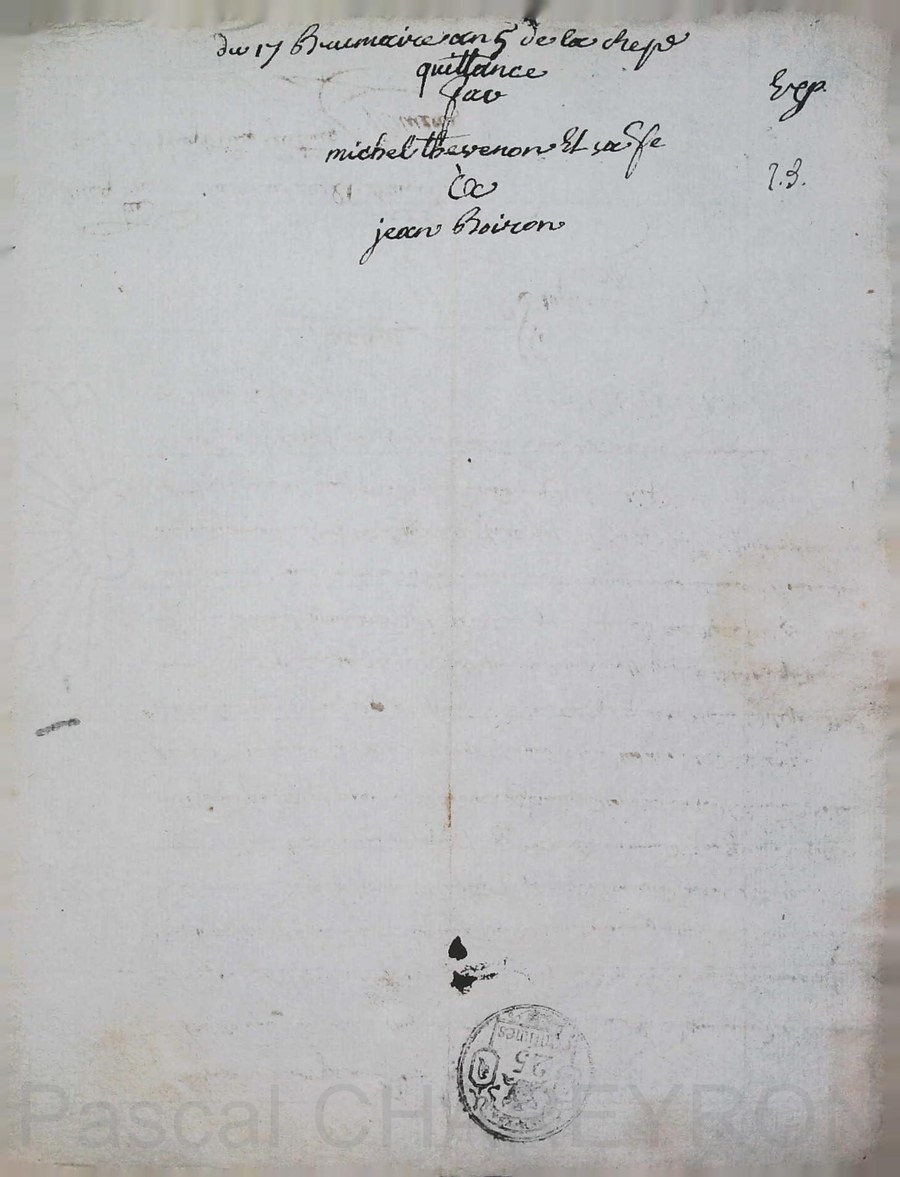 du 17 Brumaire an 5 de la Rep
quittance
par
Exp.
michel thevenon Et sa fe
à
2.3.
jean Boiron
25
centimes
Pascal CH EYRO